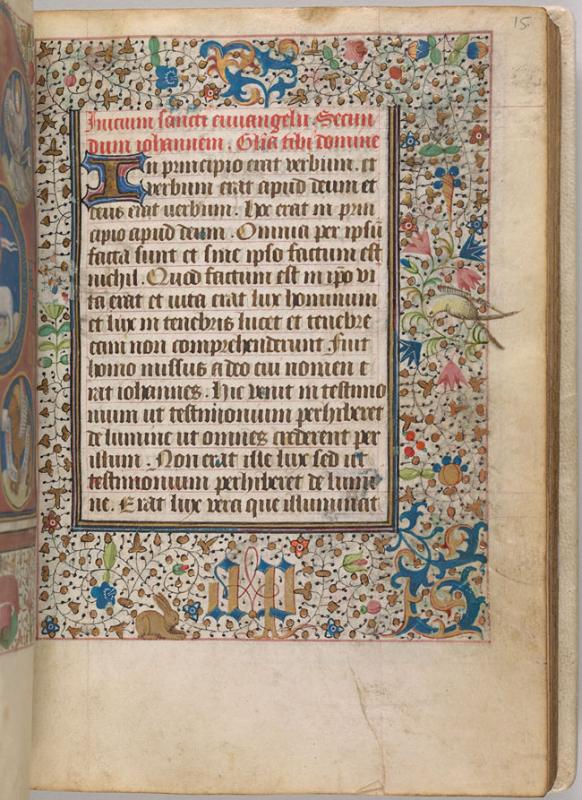 15
Inicium sancti euuangelii. Secun
dum iohannem. Gl̃ia tibi domine
In principio erat verbum. et
verbum erat apud deum et
deus erat uerbum. Hoc erat in prin
cipio apud deum. Omnia per ipsũ
facta sunt et sine ipso factum est
nichil. Quod factum est in ip̃o vi
ta erat et uita erat lux hominum
et lux in tenebris lucet et tenebre
eam non comprehenderunt Fuit
homo missus a deo cui nomen e
rat iohannes. Hic venit in testimo
nium ut testimonium perhiberet
de lumine ut omnes crederent per
illum. Non erat ille lux sed ut
testimonium perhiberet de lumi
ne. Erat lux vera que illuminat